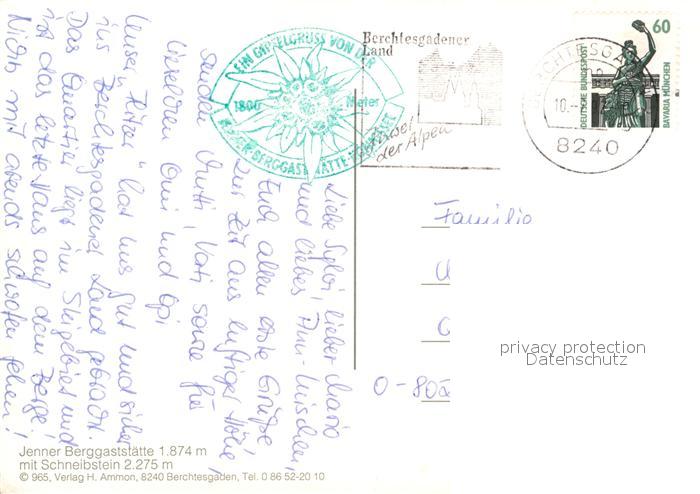 Liebe Sylvi, lieber Mario
und liebes Ann-
Euch allen erste Grüße
zur Zeit aus luftiger Höhe,
senden Mutti, Vati sowie für
Omi und Opi
Unser hat uns gut und sicher
ins Berchtesgadener Land gebracht.
Das Quartier liegt im Skigebiet und
ist das letzte Haus auf dem Berge!
Nichts mit abends schwofen gehen!
EIN GIPFELGRUSS VON DER
1800 Meter
JENNER-BERGGASTSTÄTTE
Berchtesgadener
Land
der Alpen
BERCHTESGA
10.
8240
60
DEUTSCHE BUNDESPOST
BAVARIA MÜNCHEN
Familie
O-80
privacy protection
Datenschutz
Jenner Berggaststätte 1.874 m
mit Schneibstein 2.275 m
© 965, Verlag H. Ammon, 8240 Berchtesgaden, Tel. 0 86 52-20 10